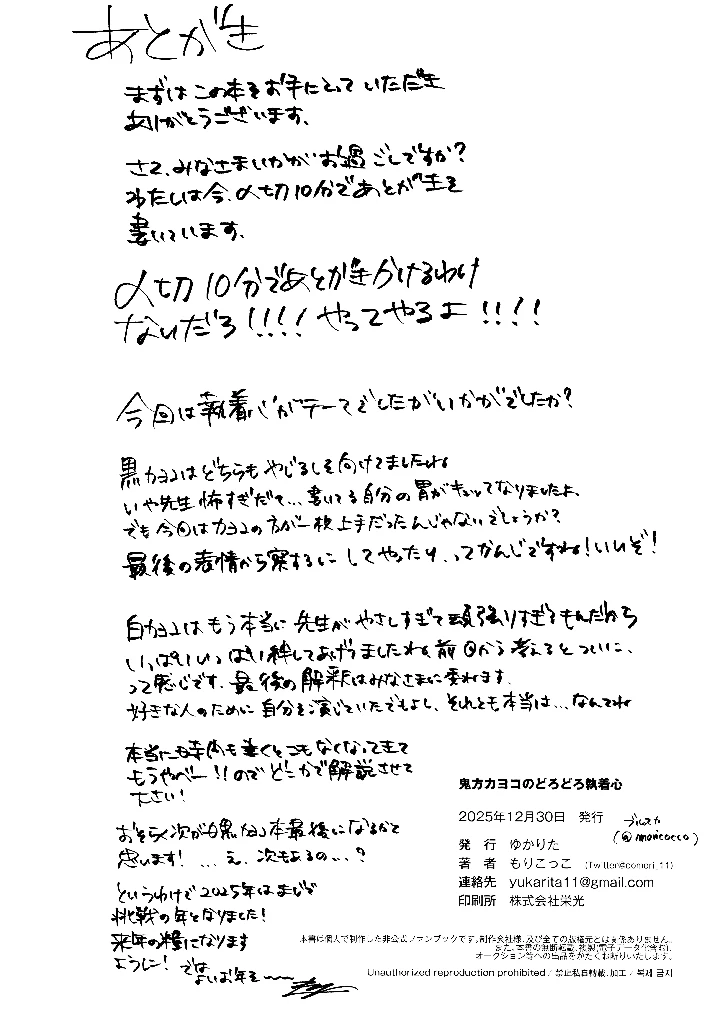 あとがき
まずはこの本をお手にとっていただき
ありがとうございます、
さて、みなさまいかがお過ごしですか?
わたしは今、〆切10分であとがきを
書いています、
〆切10分であとがきかけるわけ
ないだろ!!!! やってやるよ!!!!
今回は執着心がテーマでしたがいかがでしたか?
黒カヨコはどちらもやじるしを向けてましたね
いや先生怖すぎだて…書いてる自分の胃がキュッてなりましたよ、
でも今回はカヨコの方が一枚上手だったんじゃないでしょうか?
最後の表情から察するに してやったり、ってかんじですね!いいぞ!
白カヨコはもう本当に先生がやさしすぎて頑張りすぎるもんだから
いっぱいいっぱい絆してあげましたね、前回から考えるとついに、
って感じです、最後の解釈はみなさまに委ねます、
好きな人のために自分を演じていたでもよし、それとも本当は…なんてね
本当に時間も書くとこもなくなってきて
もうやべー!!のでどこかで解説させて
ださい!
おそらく次が白黒カヨコ本最後になるかと
思います! …え、次もあるの…?
というわけで2025年はまじで
挑戦の年となりました!
来年の糧になります
ように! では
よいお年を〜
鬼方カヨコのどろどろ執着心
2025年12月30日 発行
ブルスカ
(@moricocco)
発 行 ゆかりた
著 者 もりこっこ (Twitter@comori_11)
連絡先 yukarita11@gmail.com
印刷所 株式会社栄光
本書は個人で制作した非公式ファンブックです。制作会社様、及び全ての版権元とは関係ありません。
また、本書の無断転載、複製(電子データ化含む)、
オークション等への出品をかたくお断りいたします。
Unauthorized reproduction prohibited / 禁止私自转载、加工 / 복제 금지